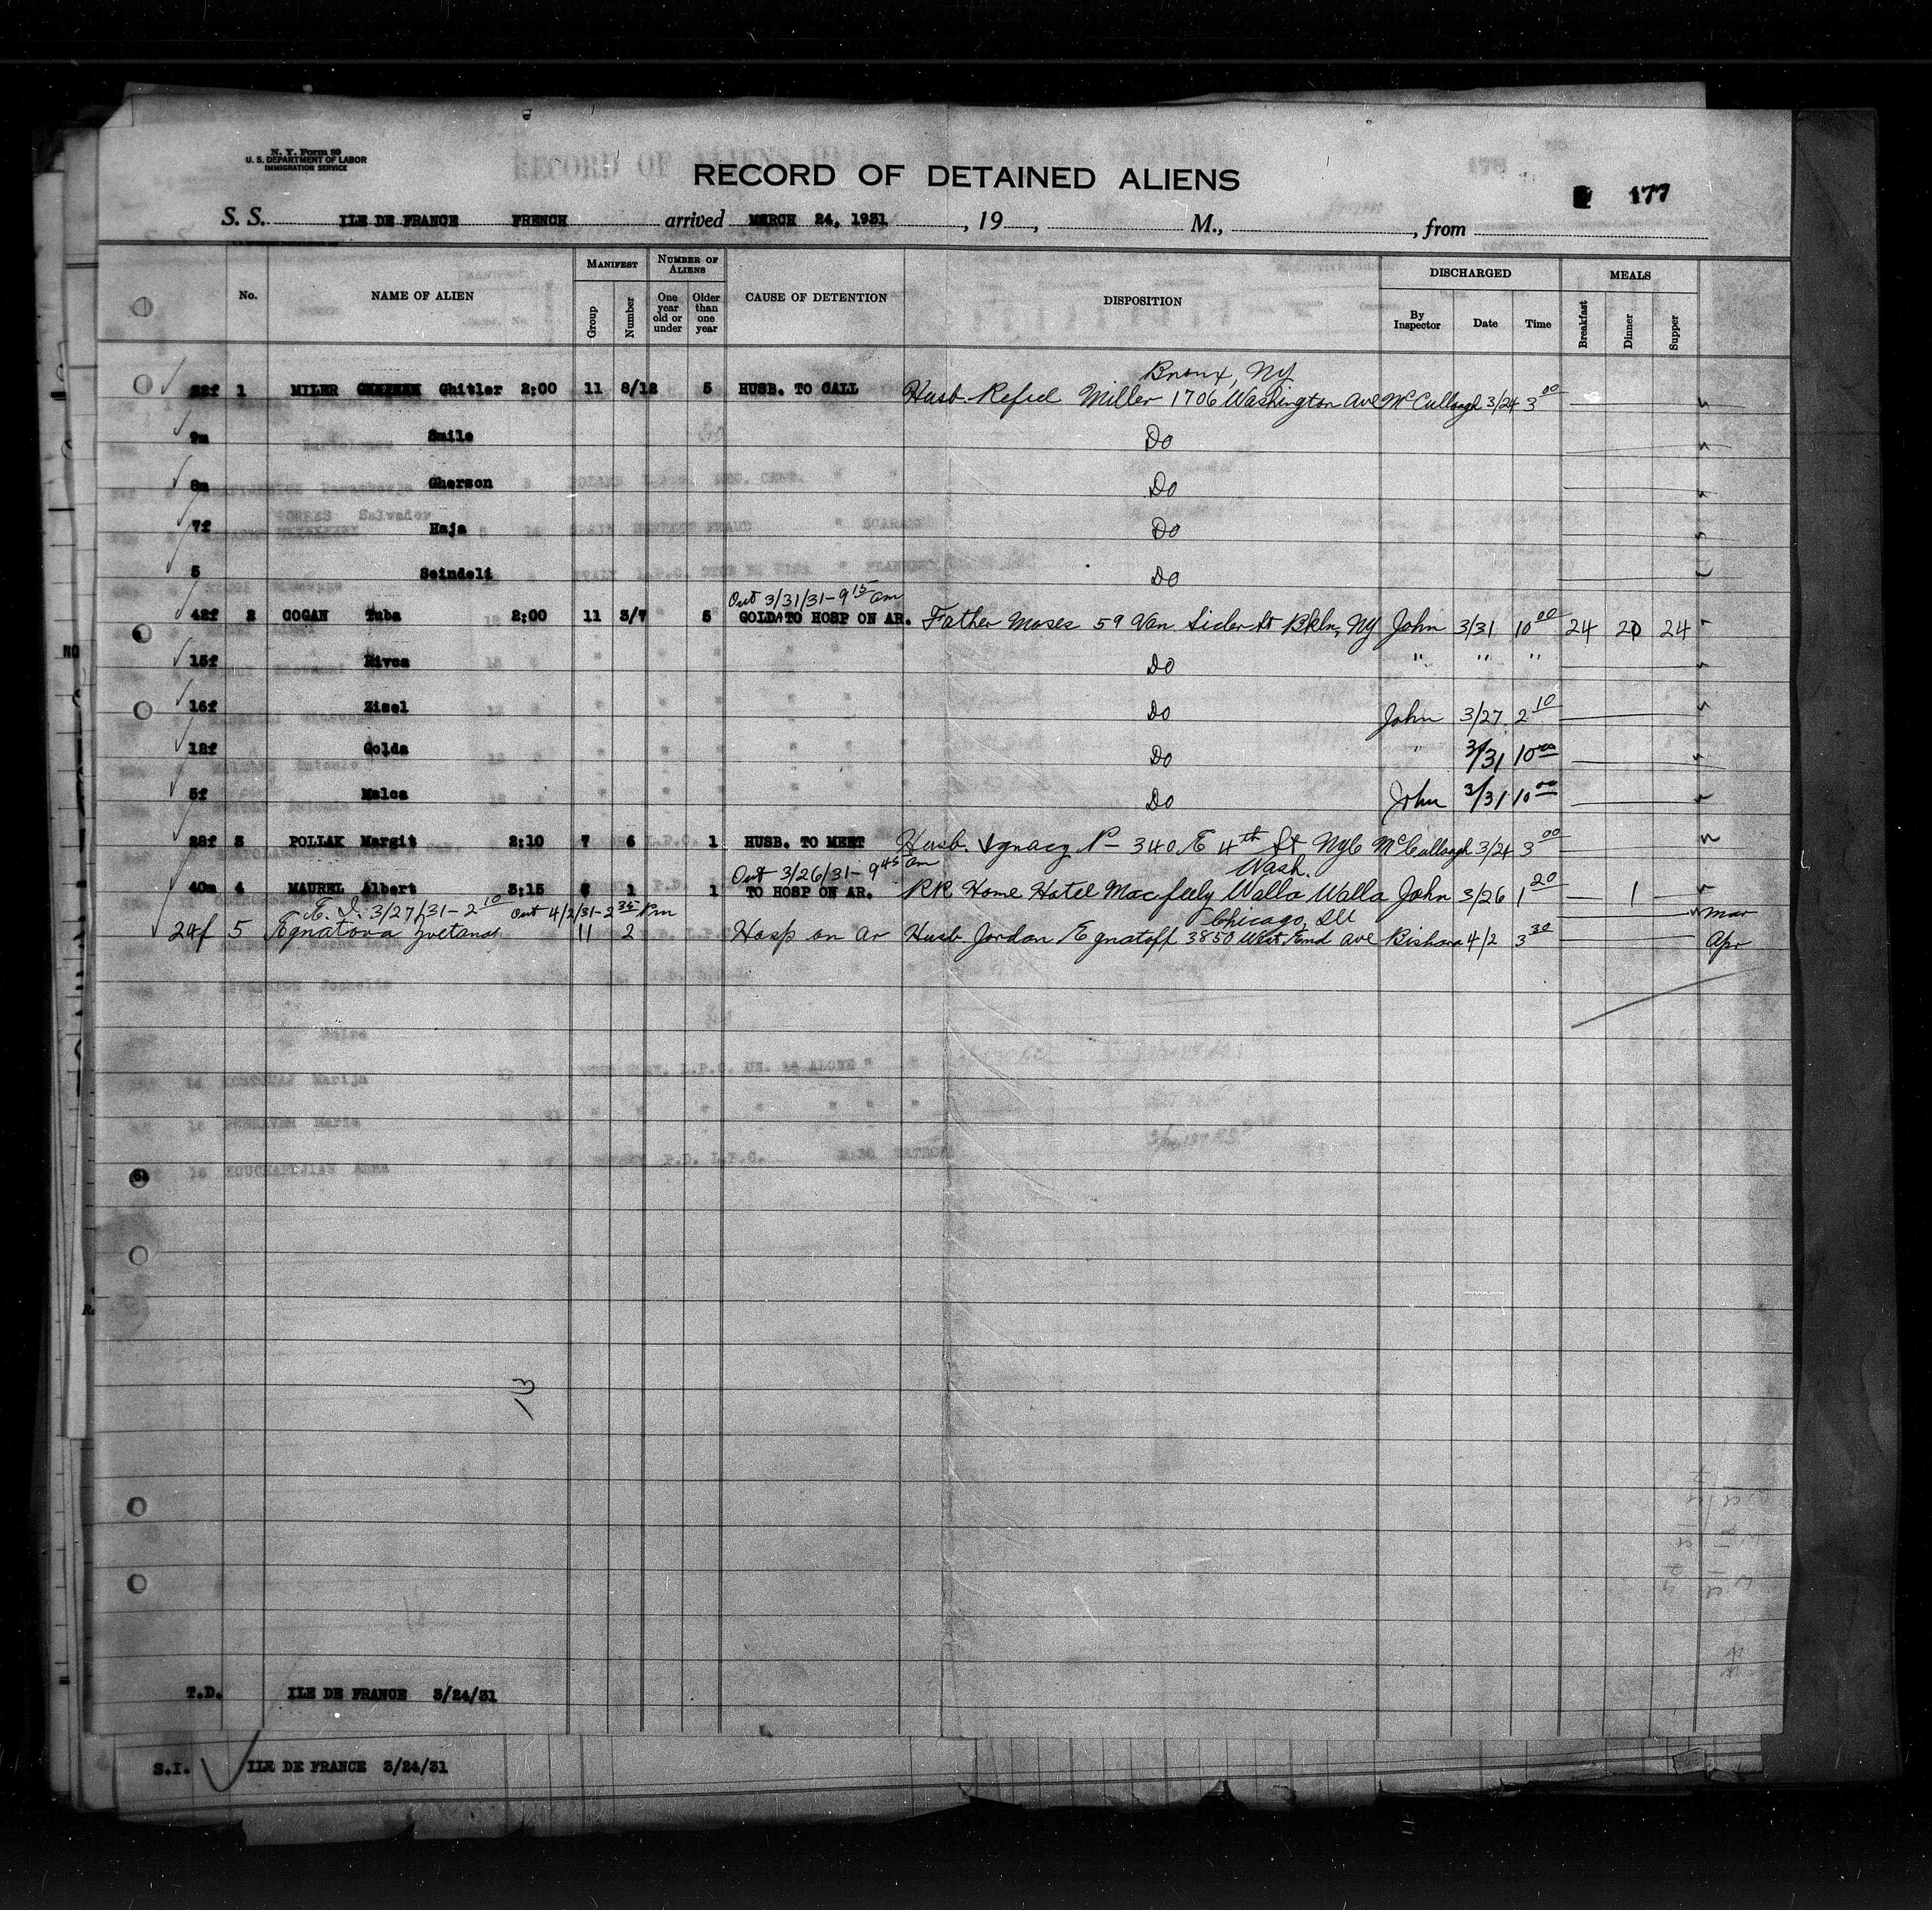 N. Y. Form 89
U. S. DEPARTMENT OF LABOR
IMMIGRATION SERVICE
RECORD OF DETAINED ALIENS
177
S. S. ILE DE FRANCE FRENCH arrived MARCH 24, 1931, 19 , M., , from
No. NAME OF ALIEN MANIFEST Group Number NUMBER OF ALIENS One year old or under Older than one year CAUSE OF DETENTION DISPOSITION DISCHARGED By Inspector Date Time MEALS Breakfast Dinner Supper
Bronx, NY
32f 1 MILER Ghitler 2:00 11 8/12 5 HUSB. TO CALL Husb. Refiel Miller 1706 Washington Ave McCullough 3/24 3 00
9m Smile Do
8m Gherson Do
7f Haja Do
5 Seindeli Do
Out 3/31/31 - 9 15 am
42f 2 COGAN Tuba 2:00 11 3/7 5 GOLDA TO HOSP ON AR. Father Moses 59 Van Sicler St Bkln, NY John 3/31 10 00 24 20 24
15f Rivca Do " " "
16f Zisel Do John 3/27 2 10
12f Golda Do " 3/31 10 00
5f Malca Do John 3/31 10 00
28f 3 POLLAK Margit 2:10 7 6 1 HUSB. TO MEET Husb. Ignacz P - 340 E 4th St NYC McCullough 3/24 3 00
Out 3/26/31 - 9 45 am Wash.
40m 4 MAUREL Albert 3:15 1 1 TO HOSP ON AR. RR Home Hotel Macfeely Walla Walla John 3/26 1 20 — 1 —
3/27/31 - 2 10 Out 4/2/31 - 2 35 Pm Chicago, Ill Mar
24f 5 Egnatova Zvetana 11 2 Hosp on ar Husb. Jordan Egnatoff 3850 West End Ave Bishara 4/2 3 30 Apr
13
T.D. ILE DE FRANCE 3/24/31
S.I. ILE DE FRANCE 3/24/31